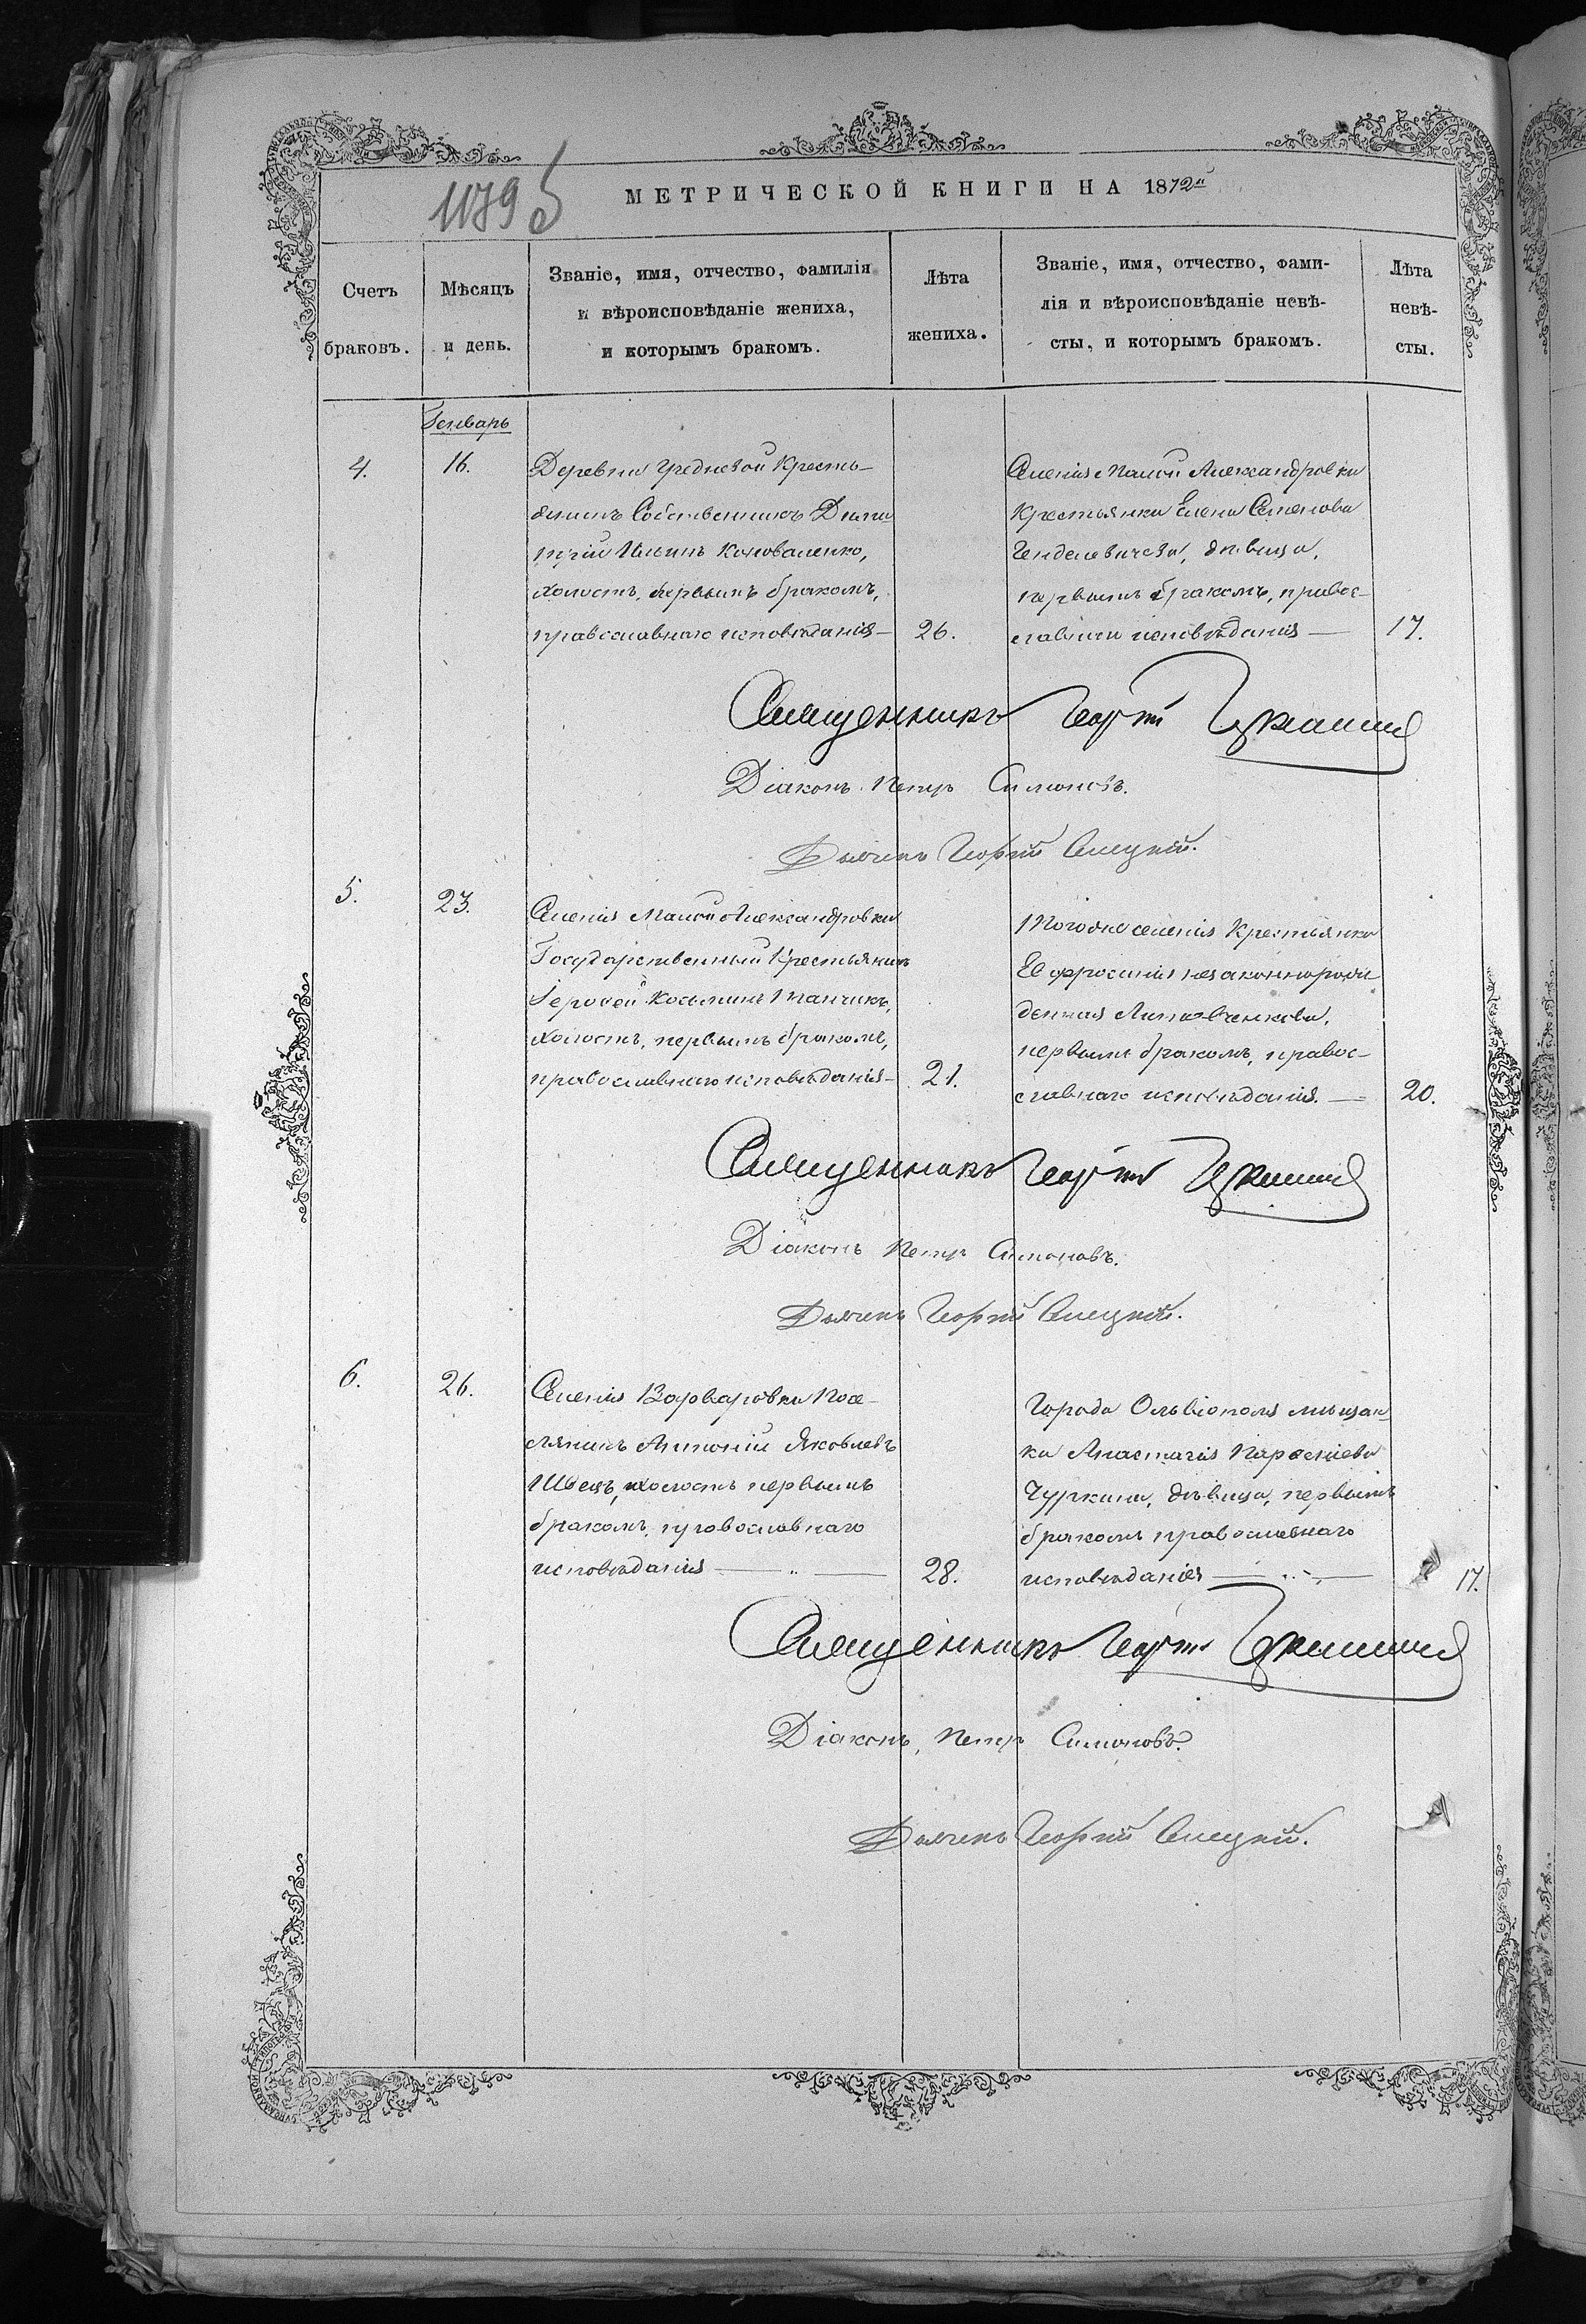 МЕТРИЧЕСКОЙ КНИГИ НА 1872й
Счетъ браковъ.
Мѣсяцъ и день.
Званіе, имя, отчество, фамилія
и вѣроисповѣданіе жениха,
и которымъ бракомъ.
Лѣта жениха.
Званіе, имя, отчество, фами-
лія и вѣроисповѣданіе невѣ-
сты, и которымъ бракомъ.
Лѣта невѣ-
сты.
Генварь
4.
16.
Деревни Гредневой Кресть-
янинъ Собственникъ Дими
трій Ильинъ Коноваленко,
холостъ, первымъ бракомъ,
православнаго исповѣданія —
26.
Селенія Малой Александровки
Крестьянка Елена Семенова
Генделевичева, дѣвица,
первымъ бракомъ, правос-
лавнаго исповѣданія —
17.
Священникъ Георгій
Діаконъ Петръ Симоновъ.
Дьячекъ Георгій
5.
23.
Селенія Малой Александровки
Государственный Крестьянинъ
Іероѳей Косьминъ Танчикъ,
холостъ, первымъ бракомъ,
православнаго исповѣданія —
21.
Тогоже селенія Крестьянка
Евфросинія незаконнорож
денная
первымъ бракомъ, правос-
лавнаго исповѣданія. —
20.
Священникъ Георгій
Діаконъ Петръ Симоновъ.
Дьячекъ Георгій
6.
26.
Селенія Варваровки Посе-
лянинъ Антоній Яковлевъ
Швецъ, холостъ первымъ
бракомъ, православнаго
исповѣданія — „ —
28.
Города Ольвіополя мѣщан
ка Анастасія Парѳеніева
Чуркина, дѣвица, первымъ
бракомъ православнаго
исповѣданія — „ —
17.
Священникъ Георгій
Діаконъ, Петръ Симоновъ.
Дьячекъ Георгій